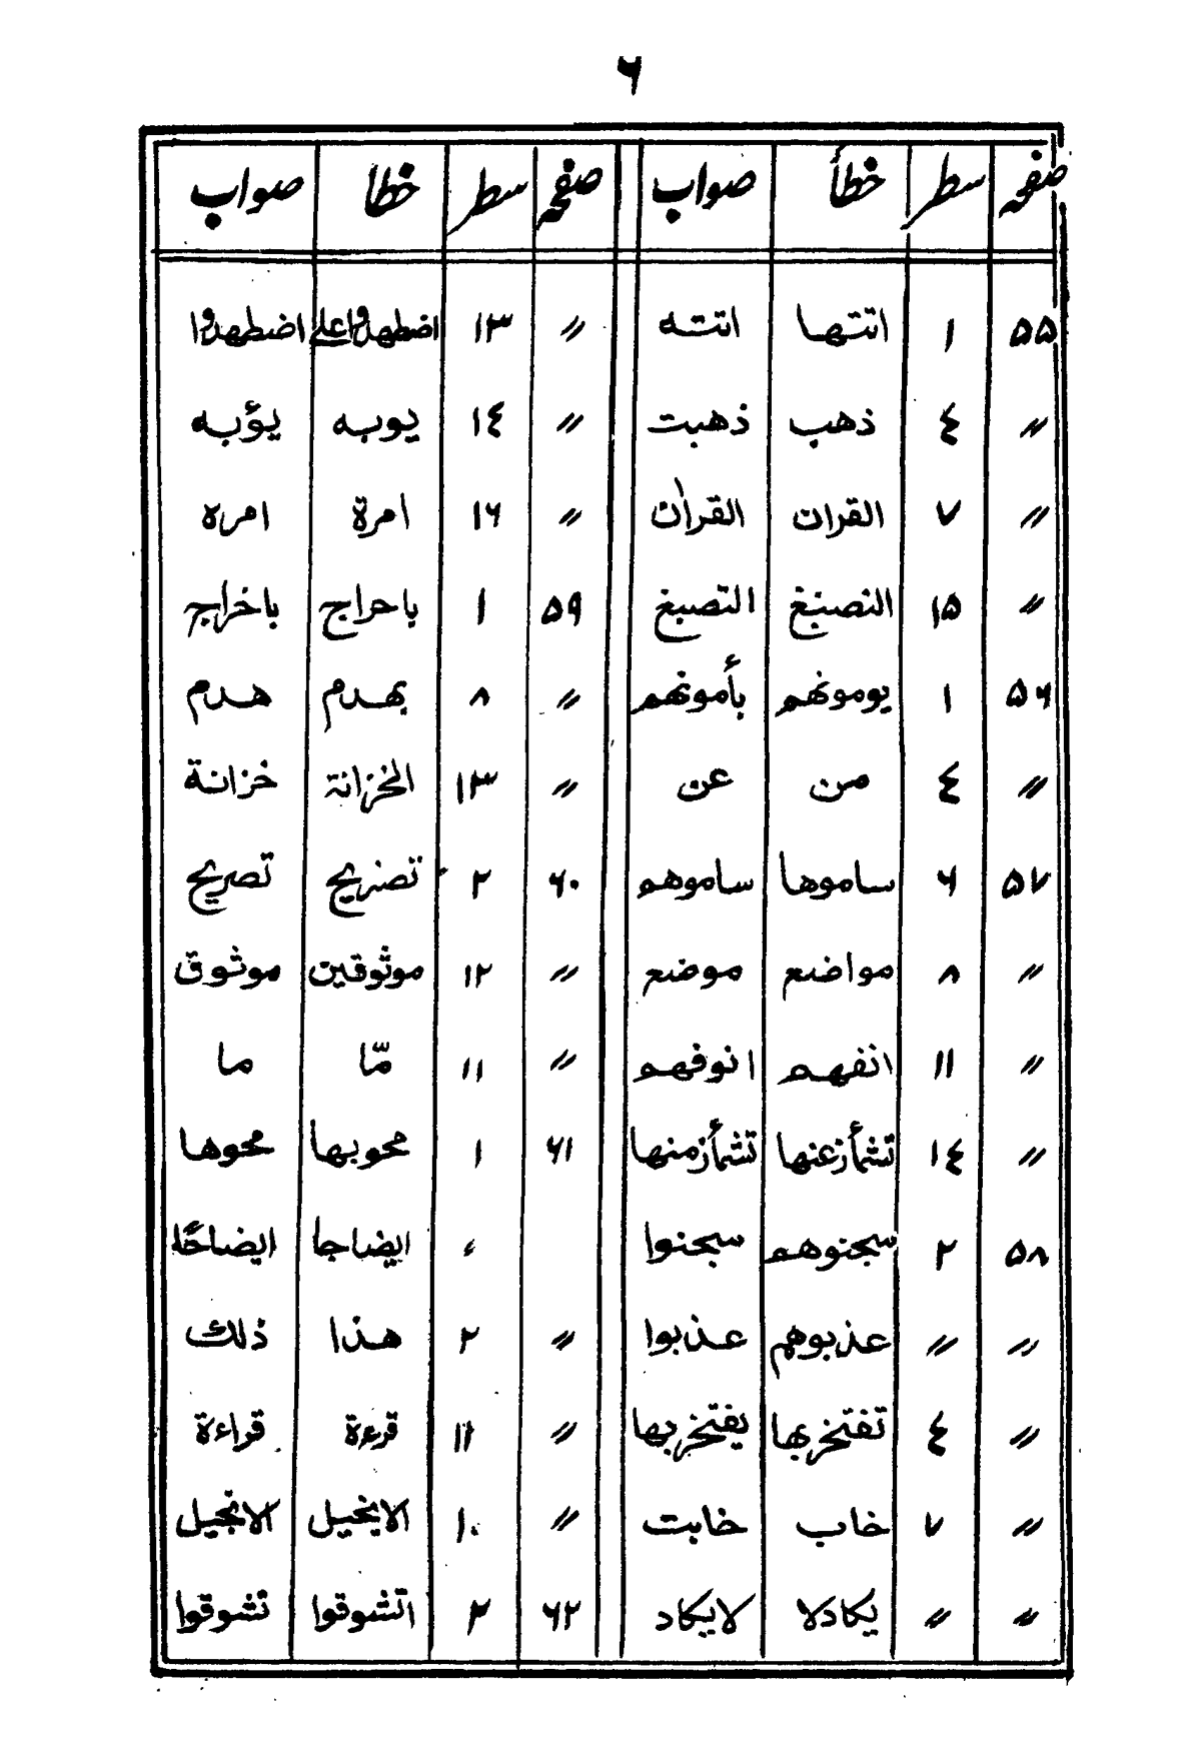 ۶
صفحه سطر خطأ صواب صفحه سطر خطا صواب
۵۵ ۱ اتتها اتته 〃 ۱۳ اضطهدوا على اضطهدوا
〃 ٤ ذهب ذهبت 〃 ۱٤ يوبه يؤبه
〃 ۷ القران القراٰن 〃 ۱۶ امرة امره
〃 ۱۵ النصنبغ التصبغ ۵۹ ۱ باحراج باخراج
۵۶ ۱ يومونهم يأمونهم 〃 ۸ بهدم هدم
〃 ٤ من عن 〃 ۱۳ الخزانة خزانة
۵۷ ۶ ساموها ساموهم ۶۰ ۲ تضريح تصريح
〃 ۸ مواضع موضع 〃 ۱۲ موثوقين موثوق
〃 ۱۱ انفهم انوفهم 〃 ۱۱ مّا ما
〃 ۱٤ تشمأز عنها تشمأز منها ۶۱ ۱ محوبها محوها
۵۸ ۲ سجنوهم سجنوا ء ايضاجا ايضاحًا
〃 〃 عذبوهم عذبوا 〃 ۲ هذا ذلك
〃 ٤ تفتخر بها يفتخر بها 〃 ۱۱ قرءة قراءة
〃 ۷ خاب خابت 〃 ۱۰ الاىخيل الانجيل
〃 〃 يكادلا لايكاد ۶۲ ۲ اتشوقوا تشوقوا